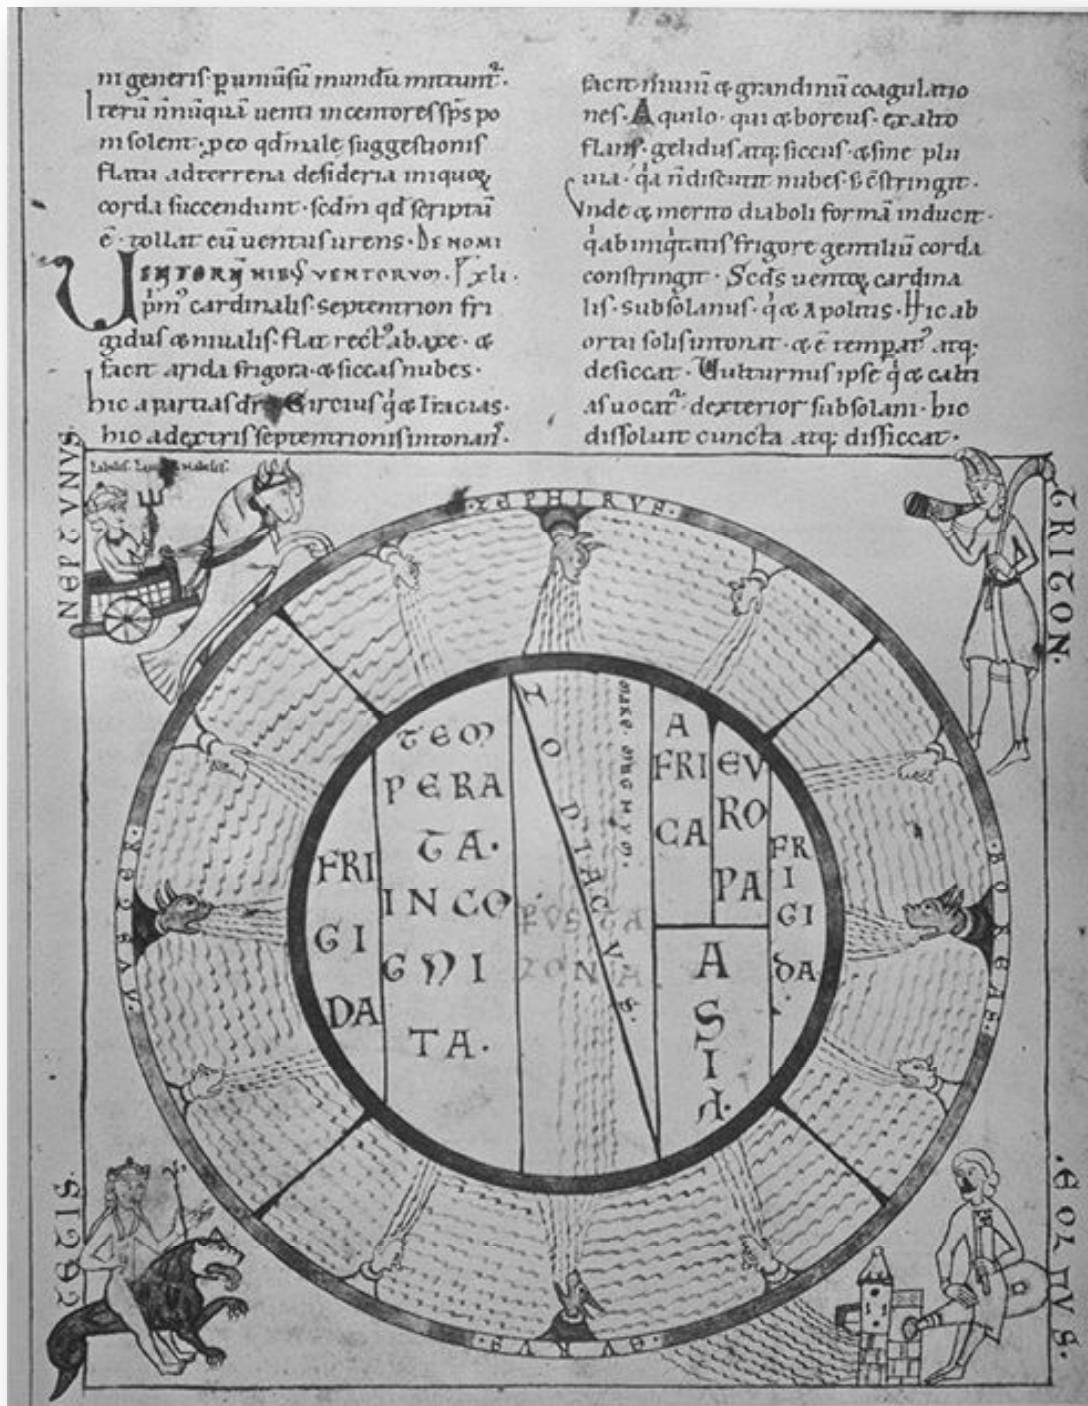 ni generis· ꝑ uniuſū mundū mittunt᷑·
Iterū nūquā uenti incentores ſp̄s po
ni ſolent· ꝑ eo qd̄ male ſuggeſtioniſ
flatu ad terrena deſideria iniquoꝝ
corda ſuccendunt· ſcdm̄ qd̄ ſcriptū
ē· tollat eū uentuſ urens· DE NOMI
NIBꝰ VENTORVM· xli·
VENTORꝜ
p̄mꝰ cardinaliſ· ſeptentrion fri
giduſ & niualiſ· flat rectꝰ ab axe· &
facit arida frigora· & ſiccaſ nubes·
hic Circiuſ q̇ & Traciaſ·
hic a dextriſ ſeptentrioniſ intonanſ·
facit niuiū & grandinū coagulatio
nes· Aquilo· qui & boreus· ex alto
flanſ· gelidus atq; ſiccus· & ſine plu
uia· q̇a n̄ diſcutit nubeſ· ſ; cſtringit·
Vnde & merito diaboli formā inducit·
q̇ ab iniq̇tatiſ frigore gentiliū corda
conſtringit· Scdſ uentoꝝ cardina
liſ· ſubſolanuſ· q̇ & Apolitiſ· Hic ab
ortu ſoliſ intonat· & ē temꝑatꝰ atq;
deſiccat· Uulturnuſ ipſe q̇ & calci
aſ uocat᷑· dexterior ſubſolani· hic
diſſoluit cuncta atq; diſſiccat·
NEPTVNVS
TRITON·
ZEPHIRVS·
TEM
PERA
TA·
INCO
GNI
TA·
FRI
GI
DA
ZODIACVS·
MARE· 
PVSTA
ZONA
A
FRI
CA
EV
RO
PA
FRI
GI
DA·
A
S
I
A·
BOREAS·
EVRVS·
EOLNVS·